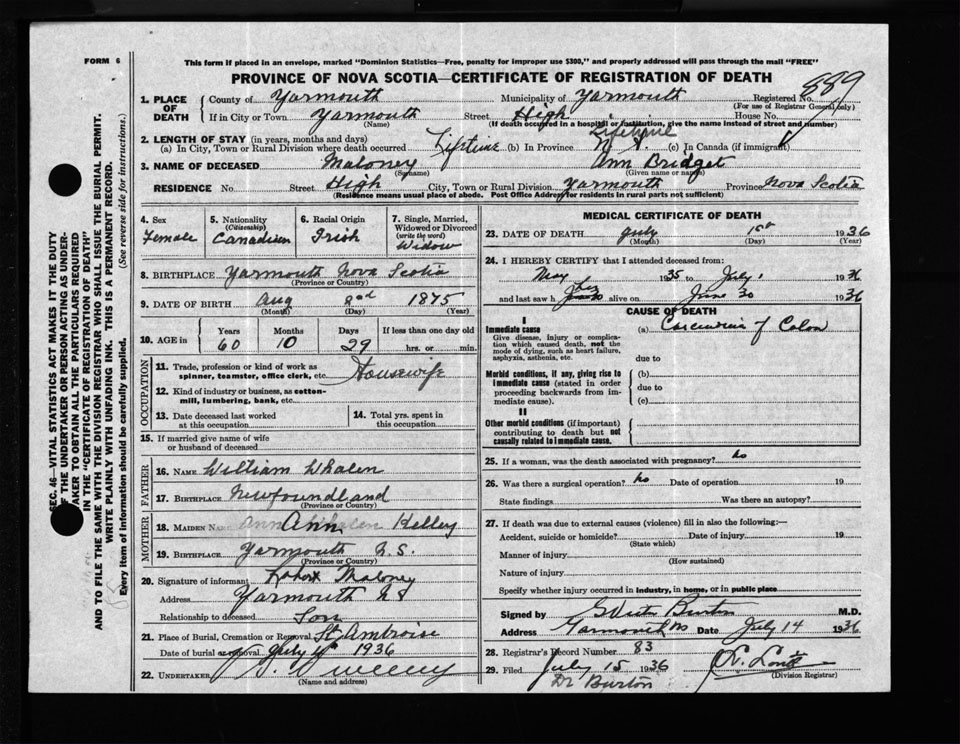 FORM 6
This form if placed in an envelope, marked "Dominion Statistics—Free, penalty for improper use $300," and properly addressed will pass through the mail "FREE"
PROVINCE OF NOVA SCOTIA—CERTIFICATE OF REGISTRATION OF DEATH
889
1. PLACE OF DEATH { County of Yarmouth Municipality of Yarmouth Registered No.
(For use of Registrar General only)
If in City or Town Yarmouth Street High House No.
(Name) (If death occurred in a hospital or institution, give the name instead of street and number)
2. LENGTH OF STAY (in years, months and days) Lifetime
(a) In City, Town or Rural Division where death occurred Lifetime (b) In Province N.S. (c) In Canada (if immigrant)
3. NAME OF DECEASED Maloney Ann Bridget
(Surname) (Given name or names)
RESIDENCE No. Street High City, Town or Rural Division Yarmouth Province Nova Scotia
(Residence means usual place of abode. Post Office Address for residents in rural parts not sufficient)
4. Sex Female
5. Nationality (Citizenship) Canadian
6. Racial Origin Irish
7. Single, Married, Widowed or Divorced (write the word) Widow
8. BIRTHPLACE Yarmouth Nova Scotia
(Province or Country)
9. DATE OF BIRTH Aug 2nd 1875
(Month) (Day) (Year)
10. AGE in { Years 60 Months 10 Days 29 If less than one day old hrs. or min.
OCCUPATION
11. Trade, profession or kind of work as spinner, teamster, office clerk, etc. Housewife
12. Kind of industry or business, as cotton-mill, lumbering, bank, etc.
13. Date deceased last worked at this occupation
14. Total yrs. spent in this occupation
15. If married give name of wife or husband of deceased
FATHER
16. NAME William Whalen
17. BIRTHPLACE Newfoundland
(Province or Country)
MOTHER
18. MAIDEN NAME Ann Kelley
19. BIRTHPLACE Yarmouth N.S.
(Province or Country)
20. Signature of informant Robert Maloney
Address Yarmouth NS
Relationship to deceased Son
21. Place of Burial, Cremation or Removal St. Ambroise
Date of burial or removal July 1936
22. UNDERTAKER Sweeny
(Name and address)
MEDICAL CERTIFICATE OF DEATH
23. DATE OF DEATH July 1st 1936
(Month) (Day) (Year)
24. I HEREBY CERTIFY that I attended deceased from:
May 1935 to July 1 1936
and last saw her alive on June 30 1936
CAUSE OF DEATH
I
Immediate cause (a) Carcinoma of Colon
Give disease, injury or complication which caused death, not the mode of dying, such as heart failure, asphyxia, asthenia, etc.
due to
Morbid conditions, if any, giving rise to immediate cause (stated in order proceeding backwards from immediate cause).
(b)
due to
(c)
II
Other morbid conditions (if important) contributing to death but not causally related to immediate cause.
25. If a woman, was the death associated with pregnancy? No
26. Was there a surgical operation? No Date of operation 19
State findings Was there an autopsy?
27. If death was due to external causes (violence) fill in also the following:—
Accident, suicide or homicide? Date of injury 19
(State which)
Manner of injury
(How sustained)
Nature of injury
Specify whether injury occurred in industry, in home, or in public place
Signed by Burton M.D.
Address Yarmouth NS Date July 14 1936
28. Registrar's Record Number 83
29. Filed July 15 1936
(Division Registrar)
Dr Burton
SEC. 46—VITAL STATISTICS ACT MAKES IT THE DUTY OF THE UNDERTAKER OR PERSON ACTING AS UNDERTAKER TO OBTAIN ALL THE PARTICULARS REQUIRED IN THE "CERTIFICATE OF REGISTRATION OF DEATH"
AND TO FILE THE SAME WITH THE DIVISION REGISTRAR WHO SHALL ISSUE THE BURIAL PERMIT.
WRITE PLAINLY WITH UNFADING INK. THIS IS A PERMANENT RECORD.
Every item of information should be carefully supplied. (See reverse side for instructions.)